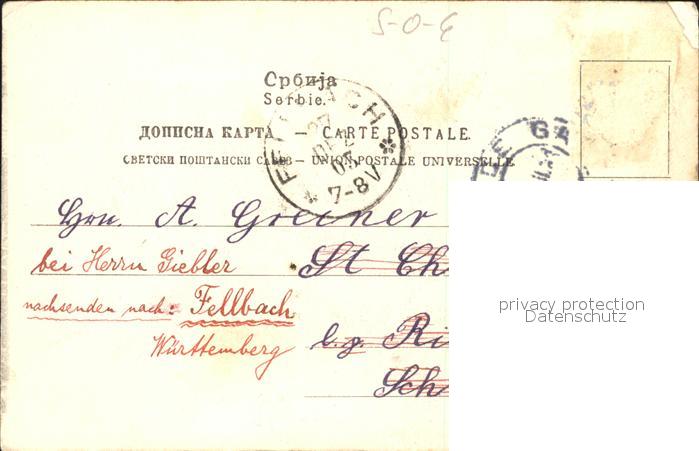 S-O-G
Србија
Serbie.
ДОПИСНА КАРТА. — CARTE POSTALE.
СВЕТСКИ ПОШТАНСКИ САВЕЗ — UNION POSTALE UNIVERSELLE
FELLBACH
27
DEZ
03
7-8 V
Hrn. A. Greiner
bei Herrn Giebler
St Ch
nachsenden nach: Fellbach
Württemberg
b. Ri
Sch
privacy protection
Datenschutz